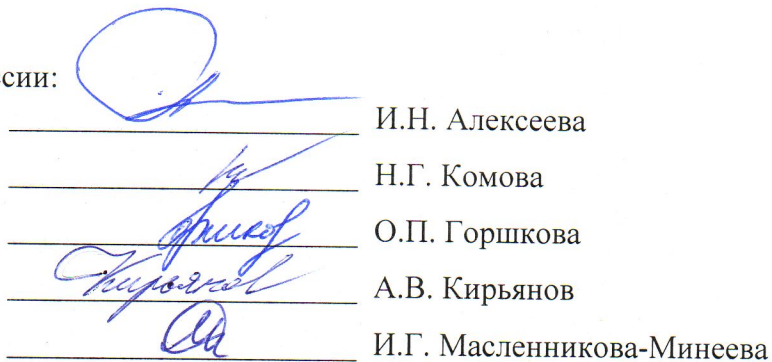 сии:
И.Н. Алексеева
Н.Г. Комова
О.П. Горшкова
Кирьянов А.В. Кирьянов
И.Г. Масленникова-Минеева